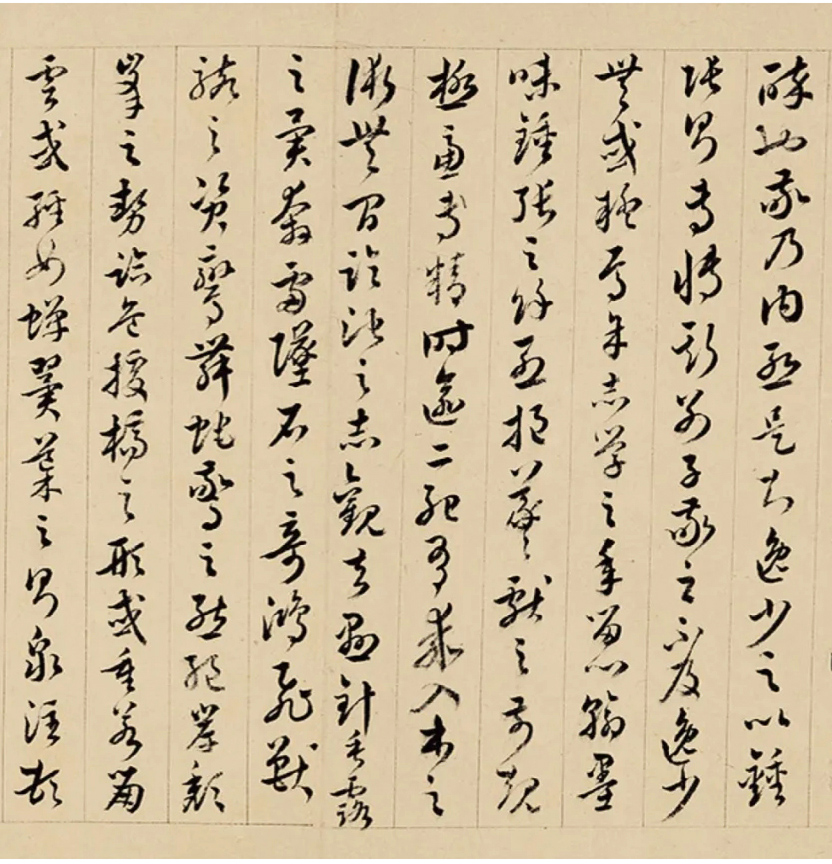 醉也敬乃内慙是知逸少之比鍾
張則專博斯別子敬之不及逸少
無或疑焉余志學之年留心翰墨
味鍾張之餘烈挹羲獻之前規
極慮專精時逾二紀有乖入木之
術無間臨池之志觀夫懸針垂露
之異奔雷墜石之奇鴻飛獸
駭之資鸞舞蛇驚之態絕岸頹
峯之勢臨危據槁之形或重若崩
雲或輕如蟬翼導之則泉注頓